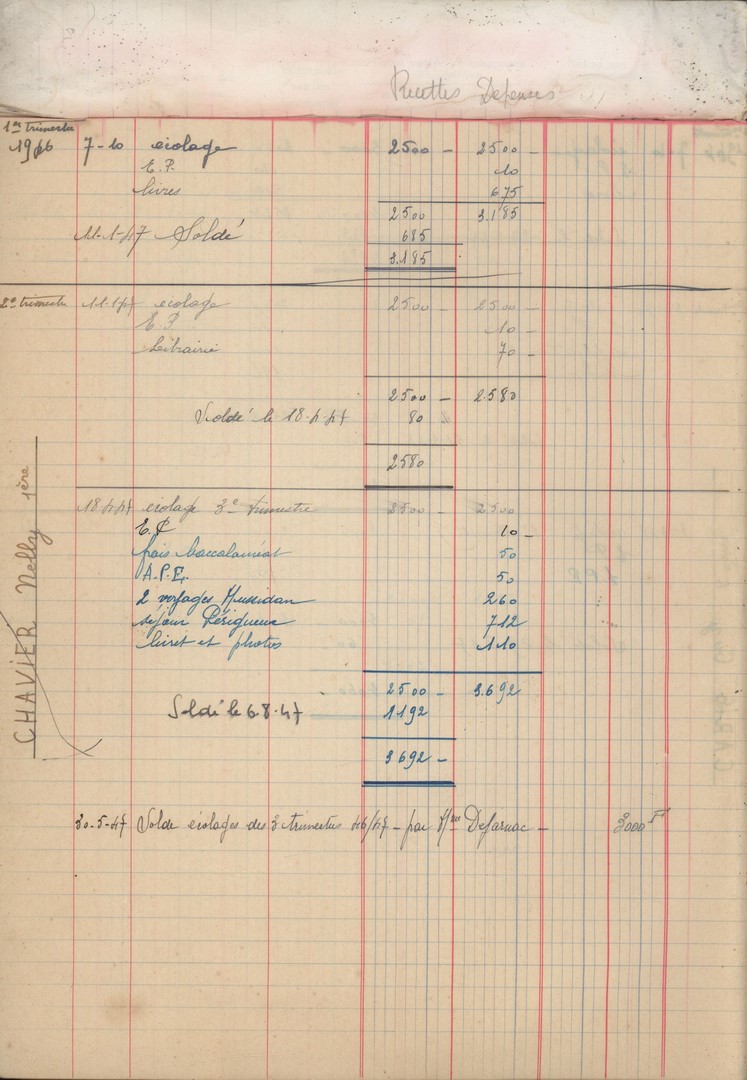 Recettes Dépenses
1er trimestre
1946 7-10 écolage 2500 - 2500 -
E.P. 10
livres 675
2500 3.185
11-1-47 Soldé 685
3.185
2e trimestre 11-1-47 écolage 2500 - 2500 -
E.P 10 -
Librairie 70 -
2500 - 2.580
Soldé le 18-4-47 80
2580
18-4-47 écolage 3e trimestre 2500 - 2500
E.P 10 -
frais baccalauréat 50
A.P.E. 50
2 voyages Mussidan 260
séjour Périgueux 712
livret et photos 110
2500 - 3.692
Soldé le 6.8.47 1192
3692 -
CHAVIER Nelly 1ère
30-5-47 Solde écolages des 3 trimestres 46/47 - par Mme Defarnac - 3000 F